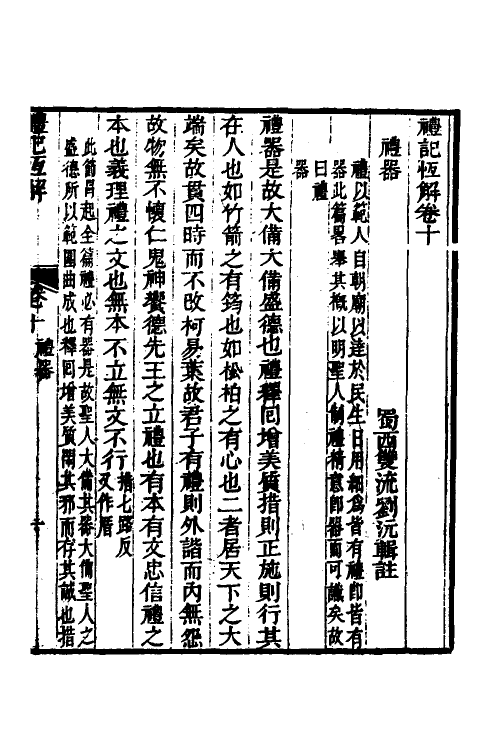 禮記恆解卷十
禮器
蜀西雙流劉沅輯註
禮以範人自朝廟以達於民生日用細爲皆有禮卽皆有
器此篇畧舉其槪以明聖人制禮精意卽器而可識矣故
曰禮
器
禮器是故大備大備盛德也禮釋回增美質措則正施則行其
在人也如竹箭之有筠也如松柏之有心也二者居天下之大
端矣故貫四時而不改柯易葉故君子有禮則外諧而內無怨
故物無不懷仁鬼神饗德先王之立禮也有本有文忠信禮之
本也義理禮之文也無本不立無文不行
措七路反
又作厝
此節冒起全篇禮必有器是故聖人大備其器大備聖人之
盛德所以範圍曲成也釋回增美質閑其邪而存其誠也措
禮記恆解
卷十 禮器